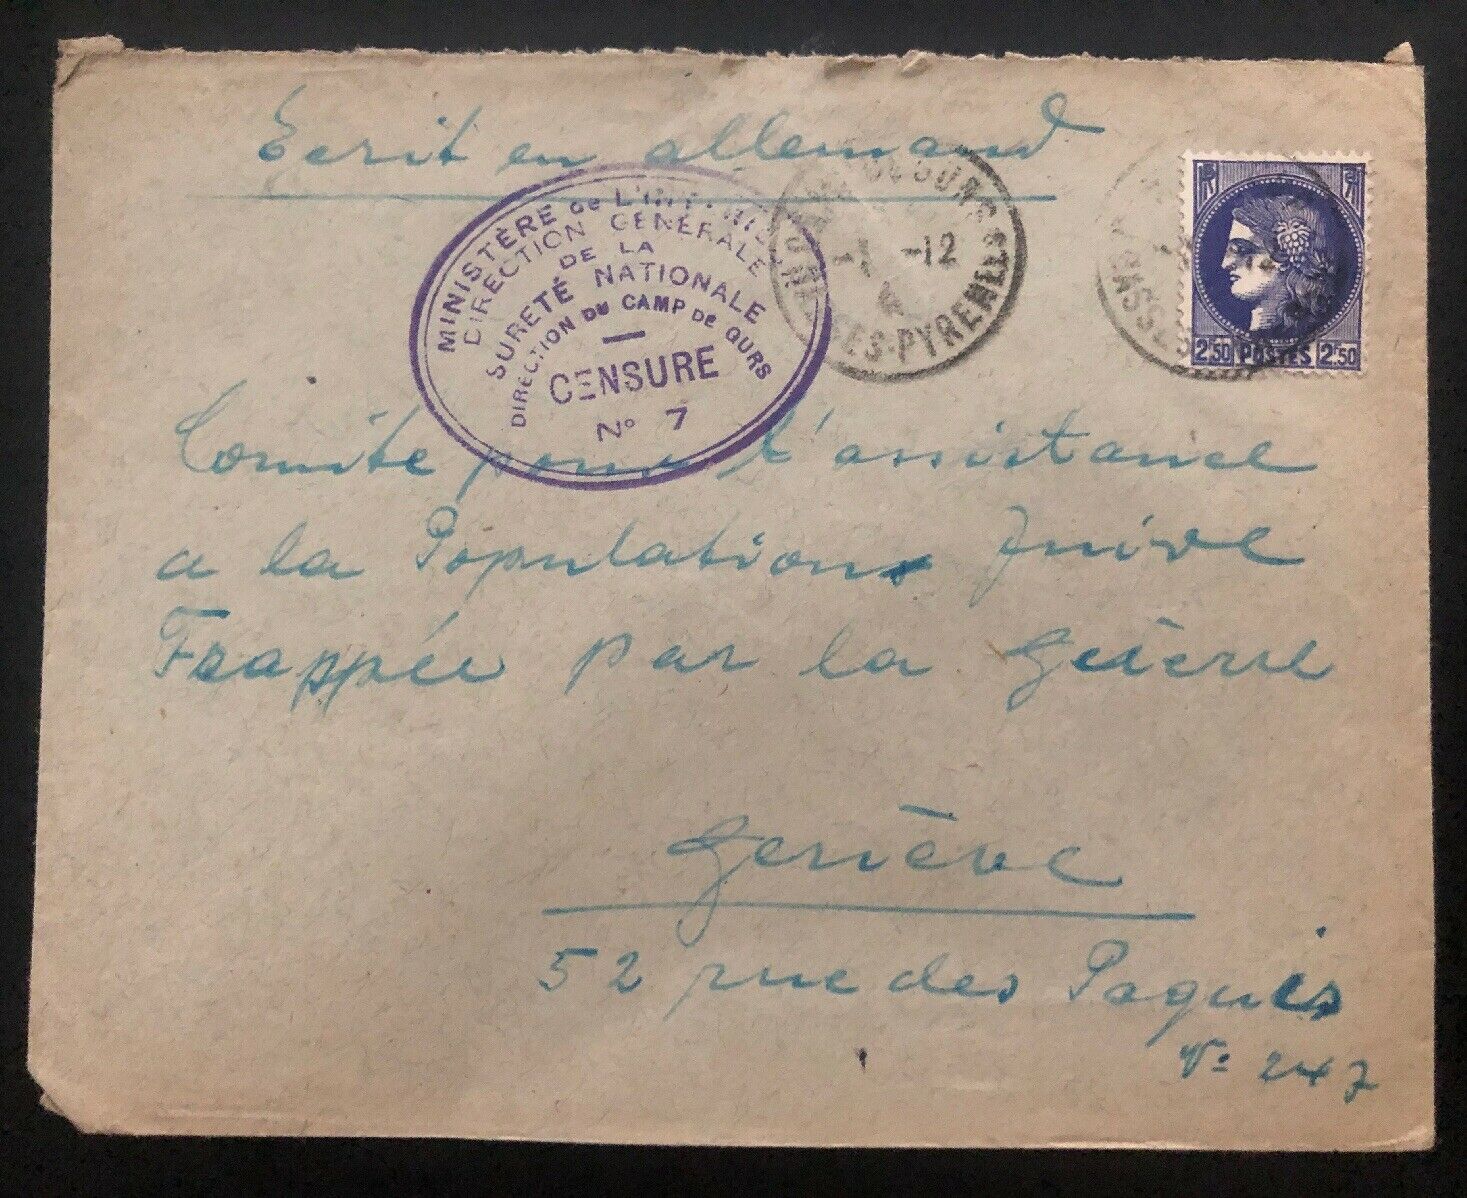 Ecrit en allemand
MINISTÈRE de L'INTÉRIEUR
DIRECTION GENÉRALE
DE LA
SURETÉ NATIONALE
DIRECTION DU CAMP DE GURS
CENSURE
No 7
-1 -12
PYRENEES
2F50 POSTES 2F50
Comité pour l'assistance
a la Populations Juive
Frappée par la Geùerre
Genève
52 rue des Paquis
No 247